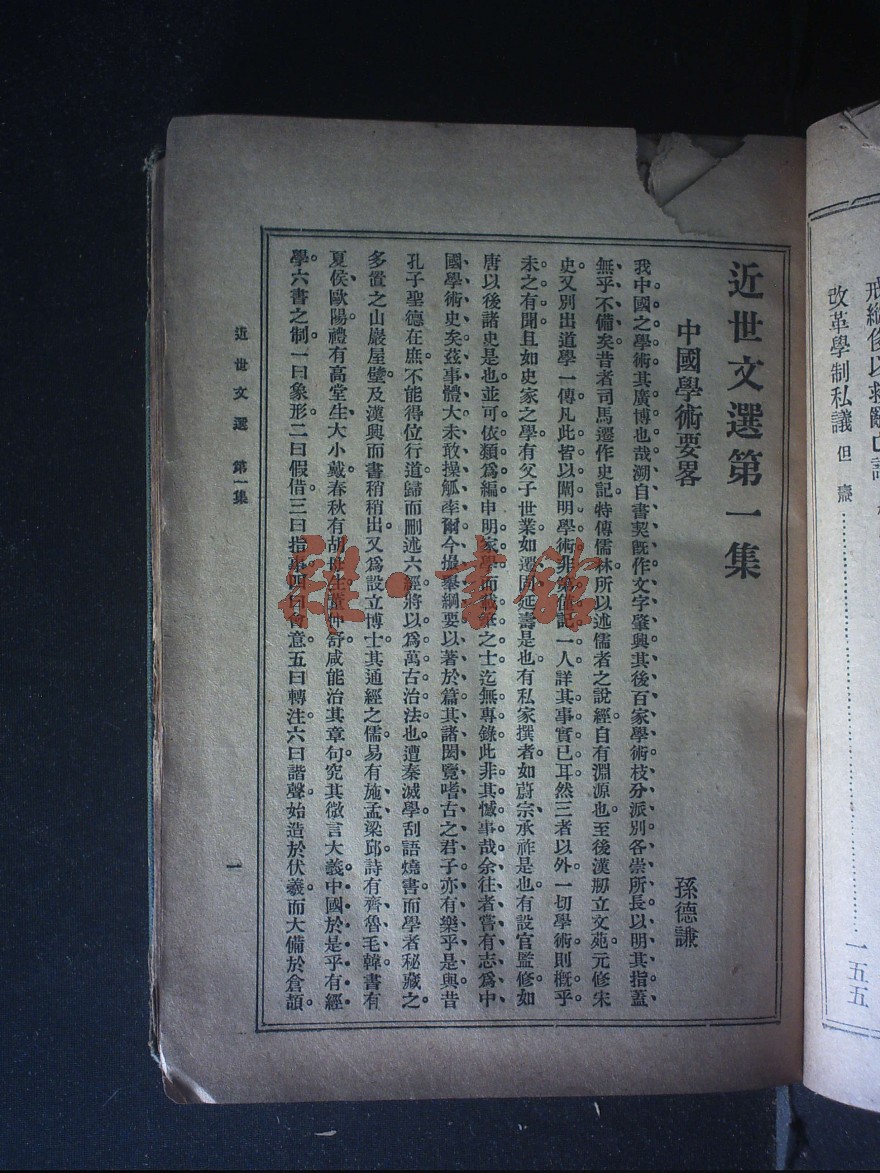 近世文選第一集
中國學術要畧
孫德謙
我中國之學術其廣博也哉溯自書契旣作文字肇興其後百家學術枝分派別各崇所長以明其指蓋
無乎不備矣昔者司馬遷作史記特傳儒林所以述儒者之說經自有淵源也至後漢剏立文苑元修宋
史又別出道學一傳凡此皆以闡明學術非第值記一人詳其事實已耳然三者以外一切學術則槪乎
未之有聞且如史家之學有父子世業如遷固延壽是也有私家撰者如蔚宗承祚是也有設官監修如
唐以後諸史是也並可依類爲編申明家學而載筆之士迄無專錄此非其憾事哉余往者嘗有志爲中
國學術史矣茲事體大未敢操觚率爾今撮舉綱要以著於篇其諸閎覽嗜古之君子亦有樂乎是與昔
孔子聖德在庶不能得位行道歸而刪述六經將以爲萬古治法也遭秦滅學刮語燒書而學者秘藏之
多置之山巖屋壁及漢興而書稍稍出又爲設立博士其通經之儒易有施孟梁邱詩有齊魯毛韓書有
夏侯歐陽禮有高堂生大小戴春秋有胡母生董仲舒咸能治其章句究其微言大義中國於是乎有經
學六書之制一曰象形二曰假借三曰指事四曰會意五曰轉注六曰諧聲始造於伏羲而大備於倉頡
近世文選 第一集
一
雜·書館
改革學制私議 但 燾
一五五